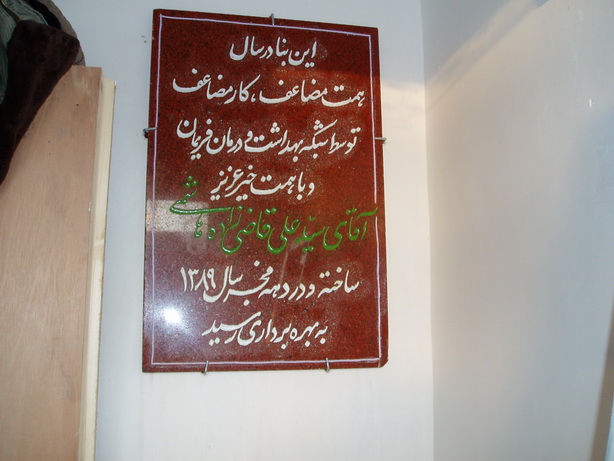 این بنا در سال
همت مضاعف، کار مضاعف
توسط شبکه بهداشت و درمان فریمان
و با همت خیر عزیز
آقای سید علی قاضی زاده هاشمی
ساخته و در دهه فجر سال ۱۳۸۹
به بهره برداری رسید